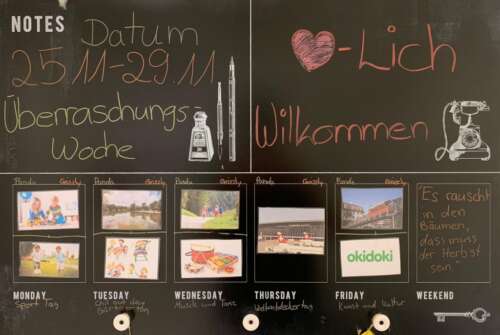 NOTES
Datum
25.11-29.11
Überraschungs-
Woche
-Lich
Willkommen
Panda Grizzly
Panda Grizzly
Panda Grizzly
Panda Grizzly
Panda Grizzly
okidoki
"Es rauscht
in den
Bäumen,
das muss
der Herbst
sein
MONDAY
Sport Tag
TUESDAY
Chill out day
WEDNESDAY
Musik und Tanz
THURSDAY
FRIDAY
Kunst und kultur
WEEKEND